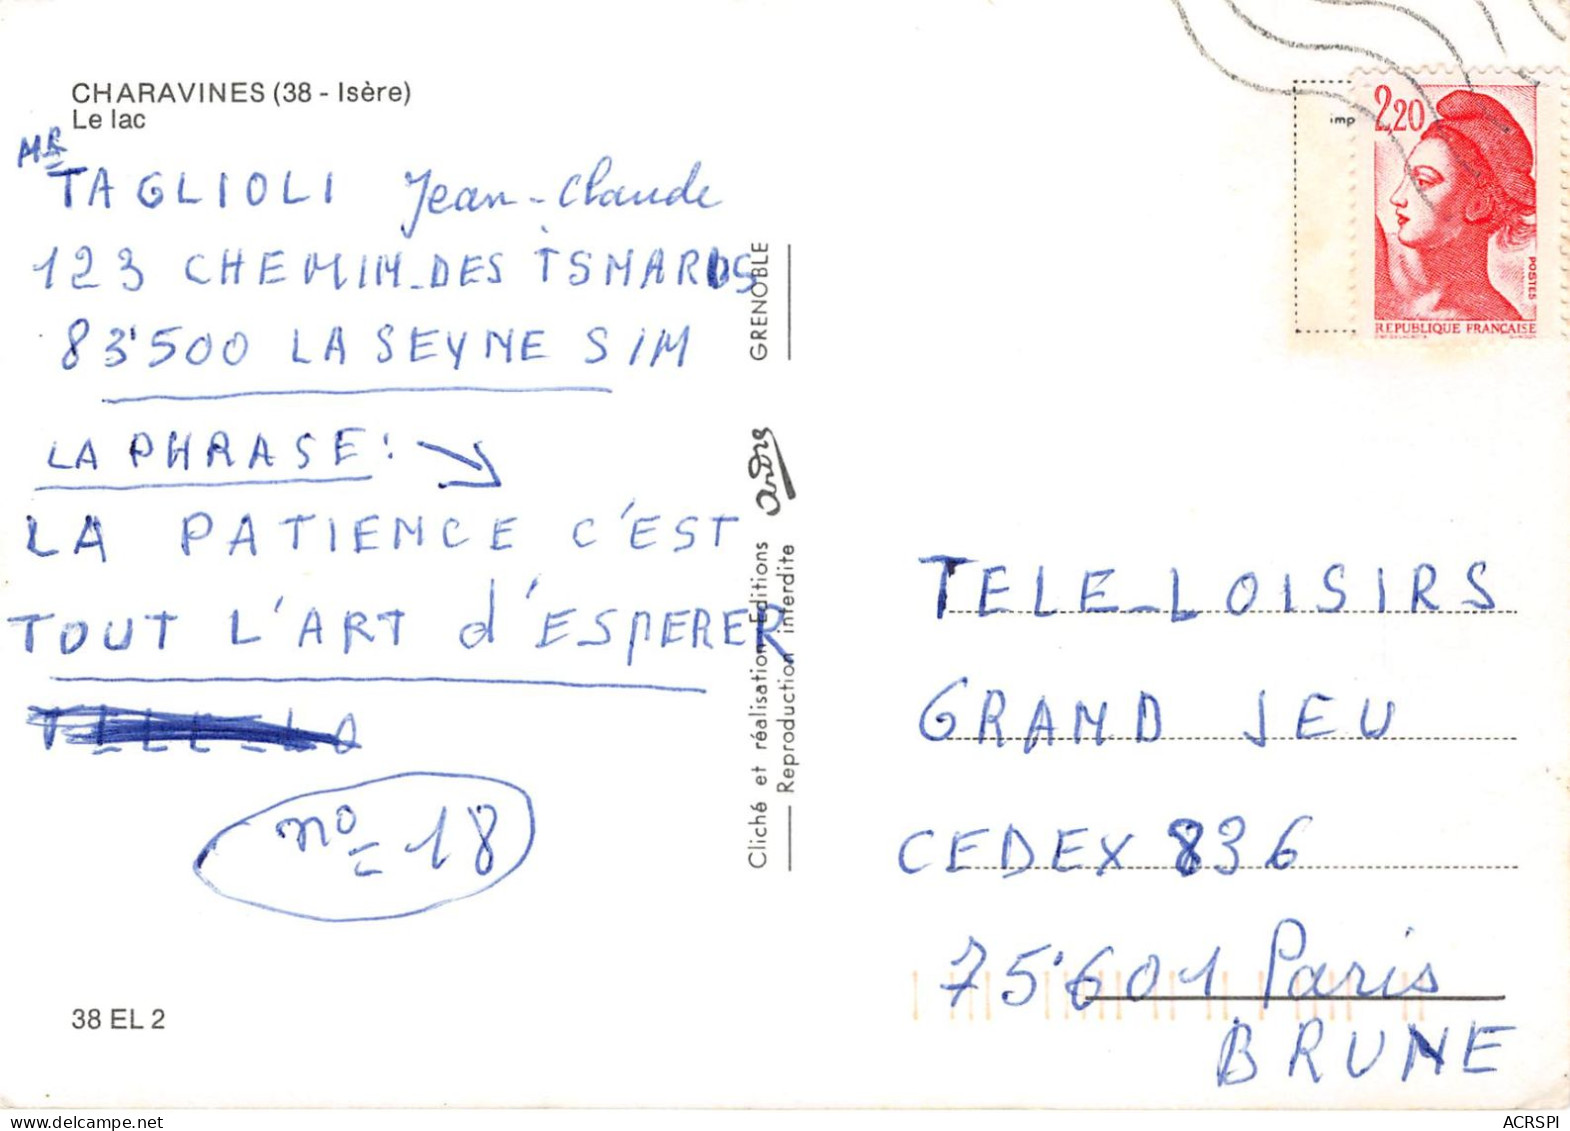 CHARAVINES (38 - Isère)
Le lac
MR
TAGLIOLI Jean-Claude
123 CHEMIN-DES ISNARDS
83'500 LA SEYNE S/M
LA PHRASE :
LA PATIENCE C'EST
TOUT L'ART d'ESPERER
n° 18
38 EL 2
GRENOBLE
Cliché et réalisation Editions André
Reproduction interdite
imp
2,20
POSTES
REPUBLIQUE FRANÇAISE
TELE-LOISIRS
GRAND JEU
CEDEX 836
75'601 Paris
BRUNE
ACRSPI